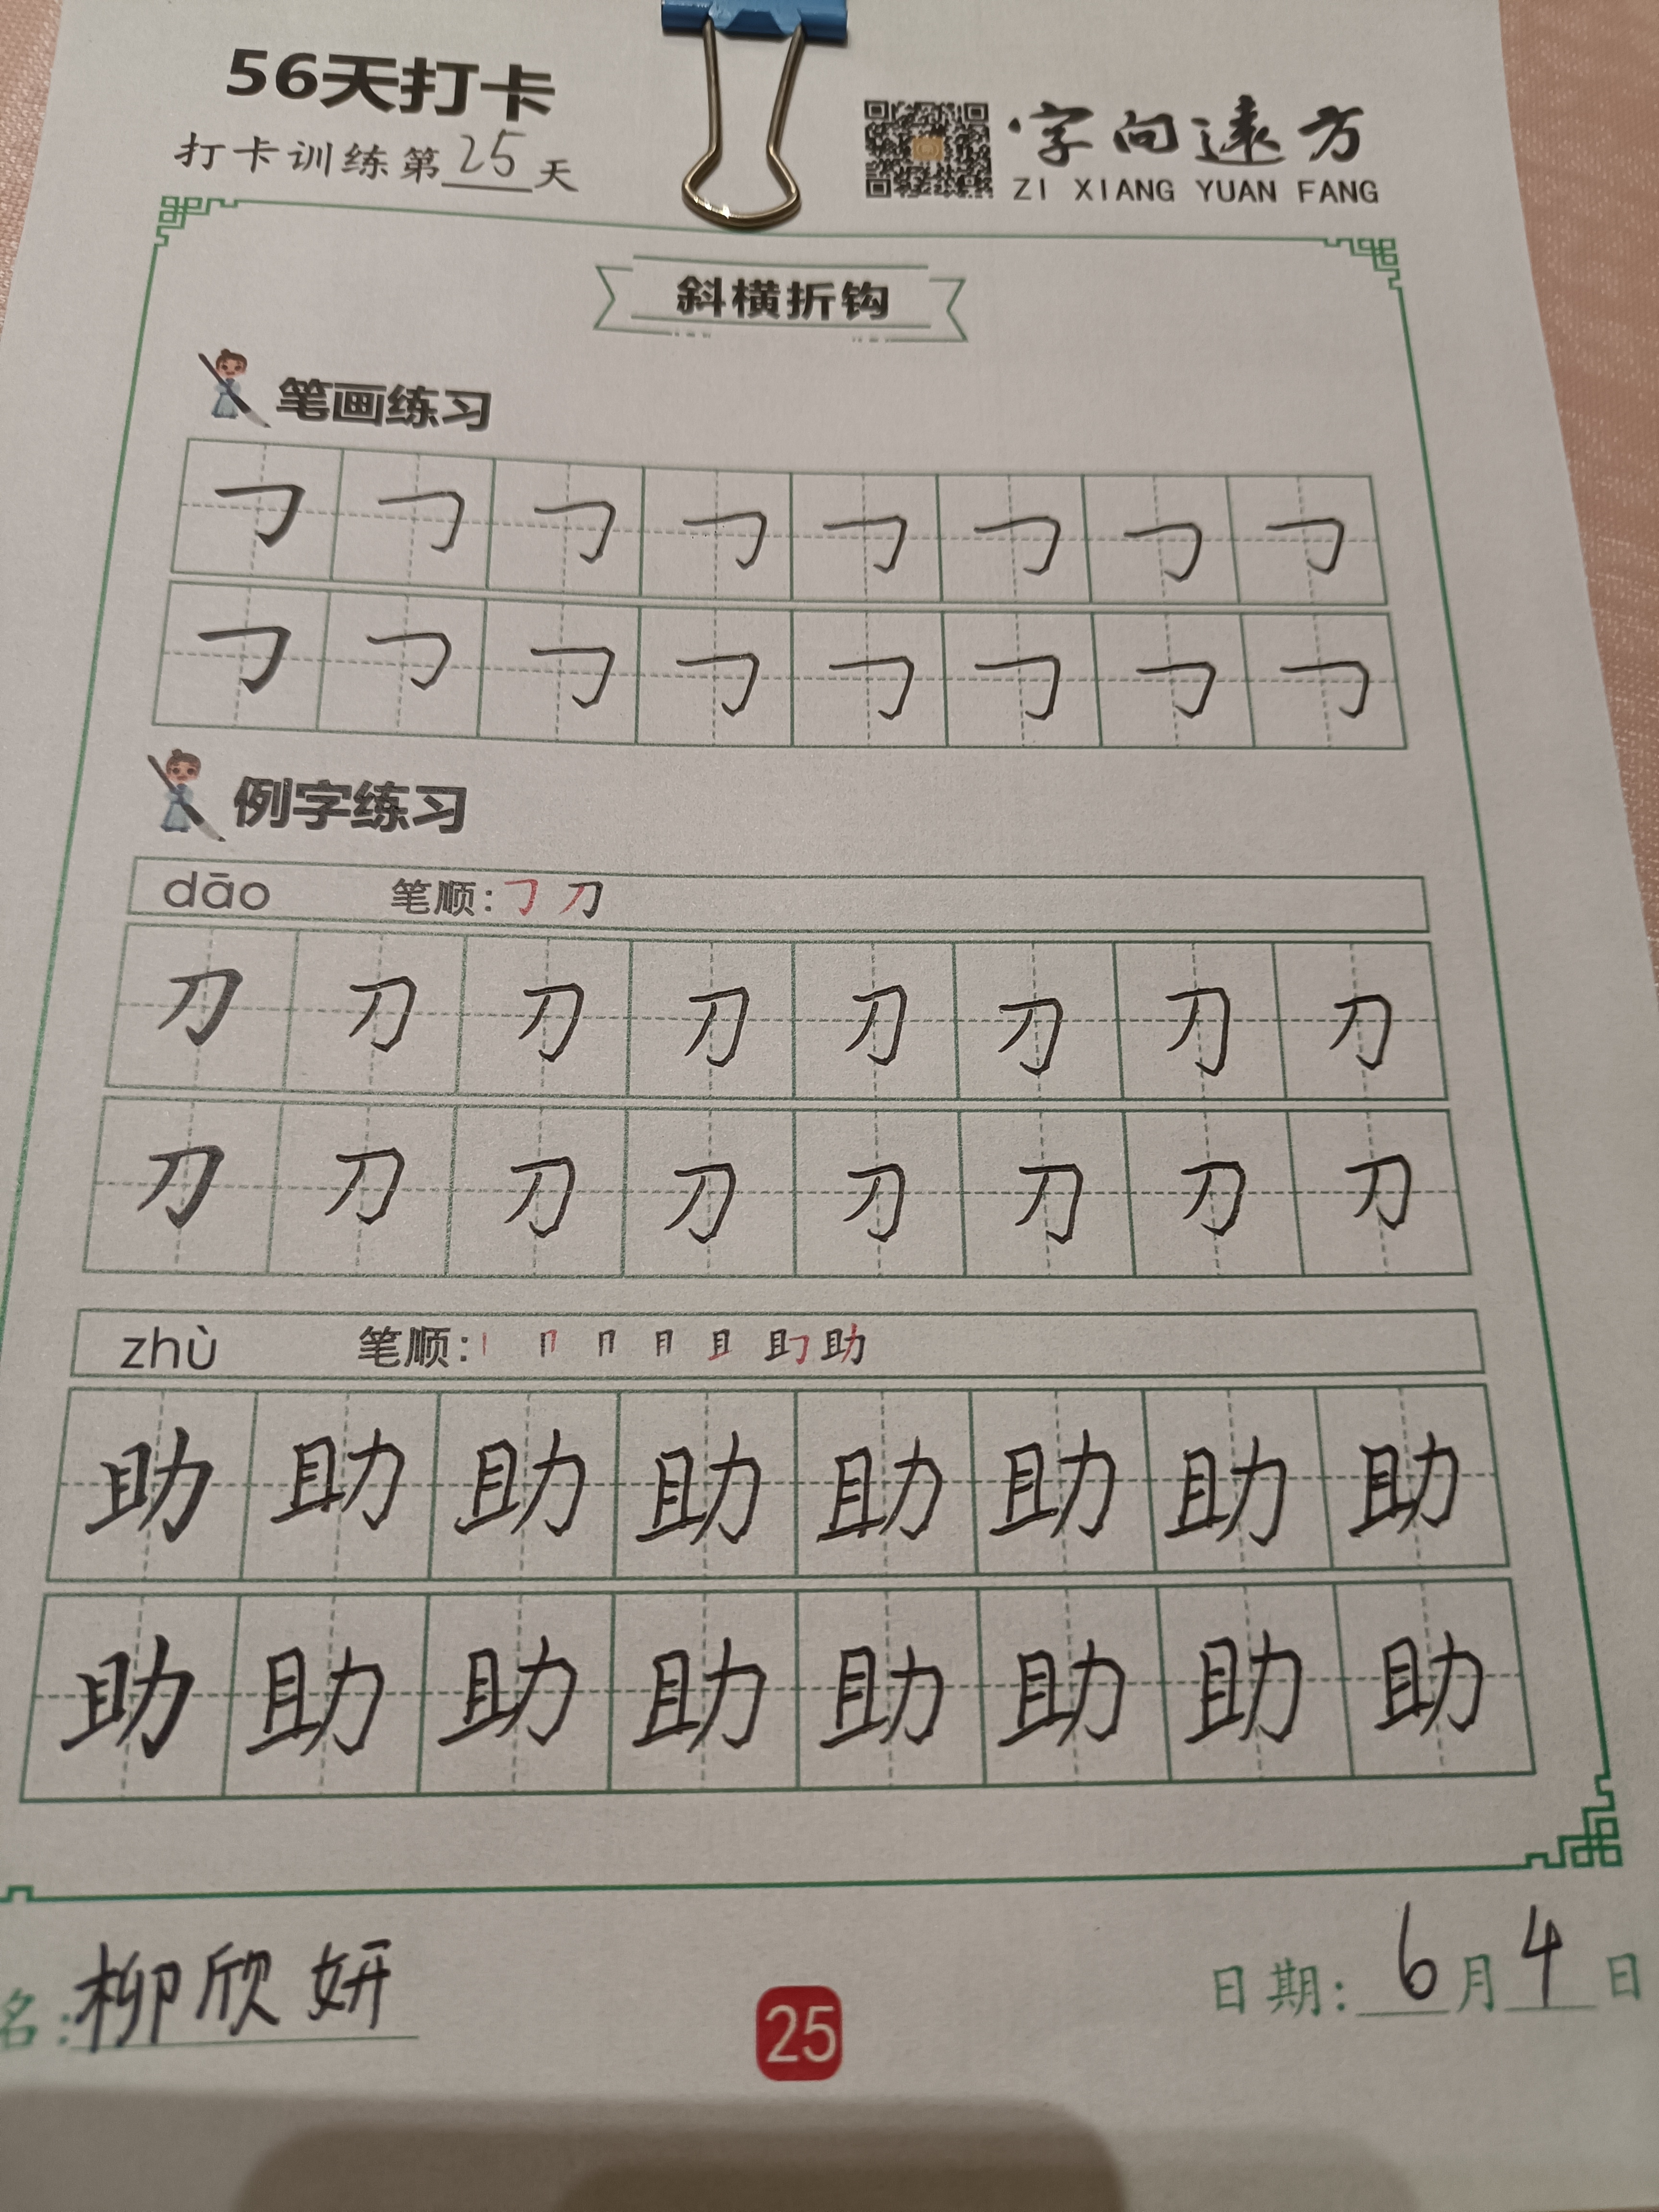 56天打卡
打卡训练第25天
字向远方
ZI XIANG YUAN FANG
斜横折钩
笔画练习
㇆ ㇆ ㇆ ㇆ ㇆ ㇆ ㇆ ㇆
㇆ ㇆ ㇆ ㇆ ㇆ ㇆ ㇆ ㇆
例字练习
dāo 笔顺: ㇆ 刀
刀 刀 刀 刀 刀 刀 刀 刀
刀 刀 刀 刀 刀 刀 刀 刀
zhù 笔顺: 助
助 助 助 助 助 助 助 助
助 助 助 助 助 助 助 助
名: 柳欣妍
25
日期: 6月4日